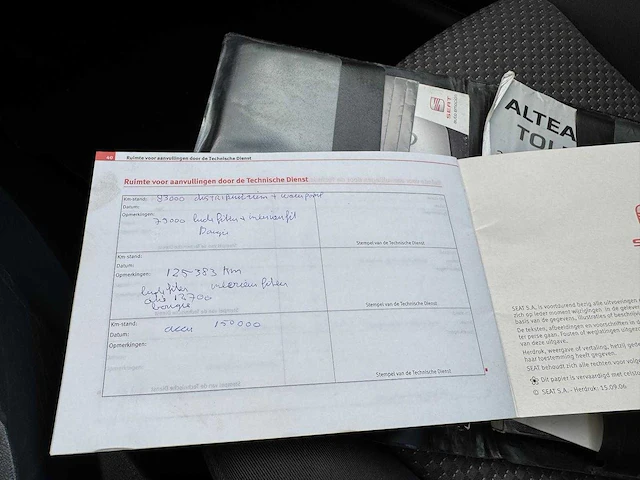 SEAT
ALTEA
TOL
40 Ruimte voor aanvullingen door de Technische Dienst
Ruimte voor aanvullingen door de Technische Dienst
Km-stand: 83000 distributieriem + waterpomp
Datum:
Opmerkingen: 79000 luchtfilter + interieurfilt
Bougie
Stempel van de Technische Dienst
Km-stand:
Datum:
Opmerkingen: 125-383 km
luchtfilter interieurfilter
olie 12700
bougie
Stempel van de Technische Dienst
Km-stand: accu 150000
Datum:
Opmerkingen:
Stempel van de Technische Dienst
SEAT S.A. is voortdurend bezig alle uitvoeringen
zich op ieder moment wijzigingen in de gereven
basis van de gegevens, illustraties of beschrijvin
De teksten, afbeeldingen en voorschriften in d
ter perse gaan. Fouten of weglatingen uitgezon
van deze uitgave.
Herdruk, weergave of vertaling, hetzij gedeel
haar toestemming heeft gegeven.
SEAT behoudt zich alle rechten voor volge
Dit papier is vervaardigd met celstof
© SEAT S.A. - Herdruk: 15.09.06